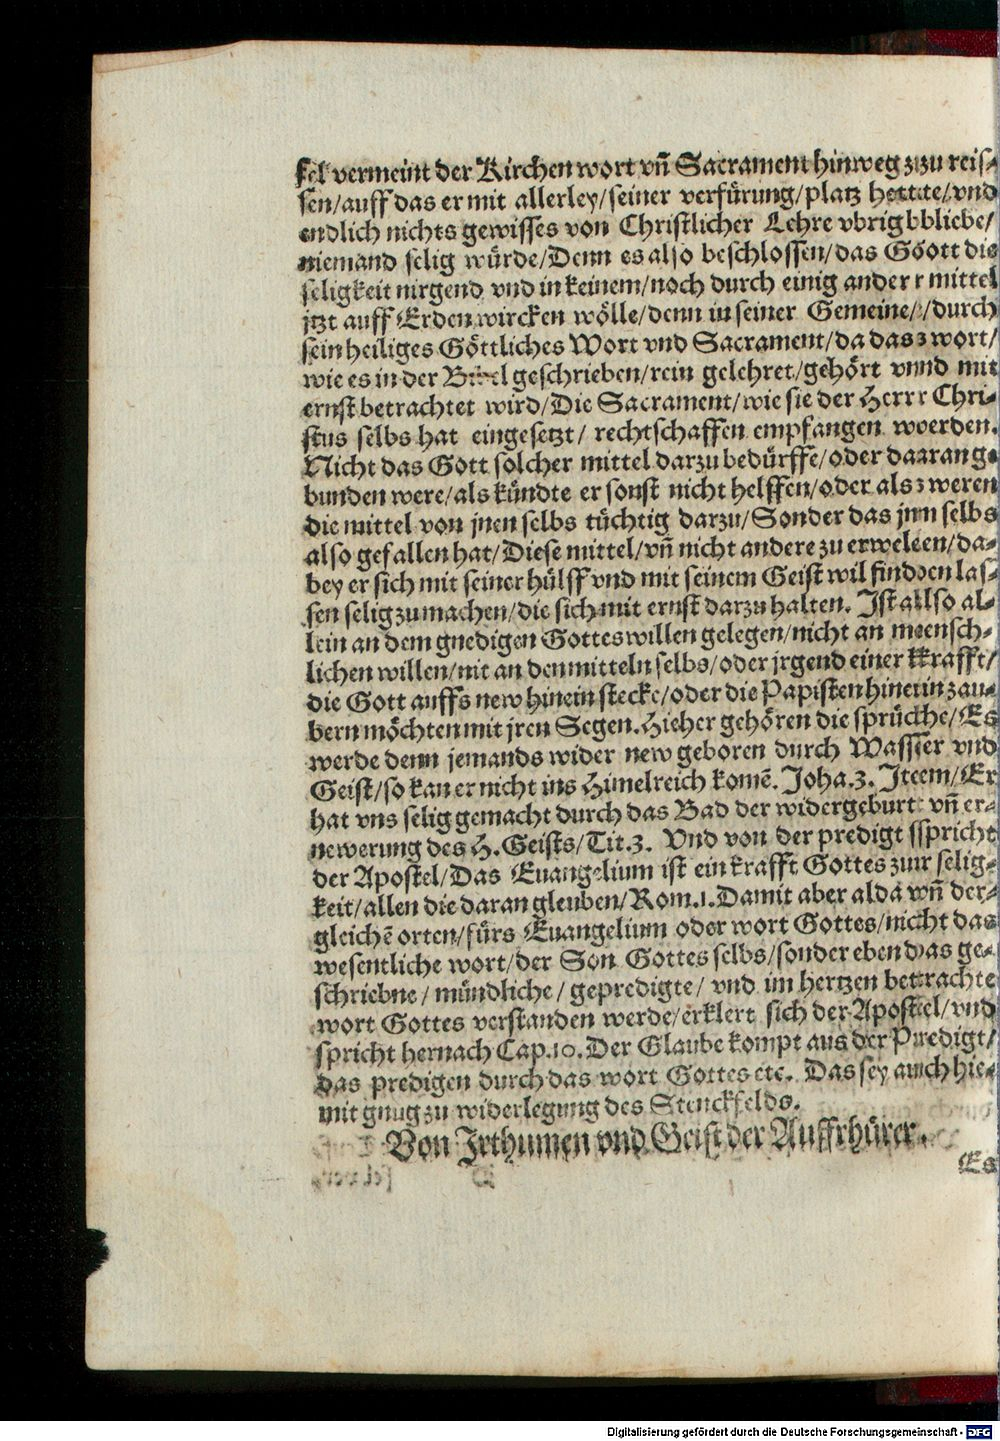 fel vermeint der Kirchen wort vñ Sacrament hinweg zu reis-
sen/auff das er mit allerley/seiner verfürung/platz hette/vnd
endlich nichts gewisses von Christlicher Lehre vbrig bliebe/
niemand selig würde/Denn es also beschlossen/das Gott die
seligkeit nirgend vnd in keinem/noch durch einig ander mittel
jtzt auff Erden wircken wölle/denn in seiner Gemeine/durch
sein heiliges Göttliches Wort vnd Sacrament/da das wort/
wie es in der Bibel geschrieben/rein gelehret/gehört vnnd mit
ernst betrachtet wird/Die Sacrament/wie sie der Herr Chri-
stus selbs hat eingesetzt/ rechtschaffen empfangen werden.
Nicht das Gott solcher mittel darzu bedürffe/oder daran ge
bunden were/als kündte er sonst nicht helffen/oder als weren
die mittel von jnen selbs tüchtig darzu/Sonder das jm selbs
also gefallen hat/Diese mittel/vñ nicht andere zu erwelen/da-
bey er sich mit seiner hülff vnd mit seinem Geist wil finden las-
sen selig zu machen/die sich mit ernst darzu halten. Ist also al-
lein an dem gnedigen Gottes willen gelegen/nicht an mensch-
lichen willen/nit an den mitteln selbs/oder jrgend einer krafft/
die Gott auffs new hinein stecke/oder die Papisten hinein zau-
bern möchten mit jren Segen. Hieher gehören die sprüche/Es
werde denn jemands wider new geboren durch Wasser vnd
Geist/so kan er nicht ins Himelreich komẽ. Joha.3. Item/Er
hat vns selig gemacht durch das Bad der widergeburt vñ er-
newerung des H. Geists/Tit.3. Vnd von der predigt spricht
der Apostel/Das Euangelium ist ein krafft Gottes zur selig-
keit/allen die daran gleuben/Rom.1. Damit aber alda vñ der-
gleichẽ orten/fürs Euangelium oder wort Gottes/nicht das
wesentliche wort/der Son Gottes selbs/sonder eben das ge-
schriebne/ mündliche/ gepredigte/ vnd im hertzen betrachte
wort Gottes verstanden werde/erklert sich der Apostel/vnd
spricht hernach Cap.10. Der Glaube kompt aus der Predigt/
das predigen durch das wort Gottes etc. Das sey auch hie-
mit gnug zu widerlegung des Stenckfelds.
Von Irthumen vnd Geist der Auffrhürer.
Es
Digitalisierung gefördert durch die Deutsche Forschungsgemeinschaft - DFG